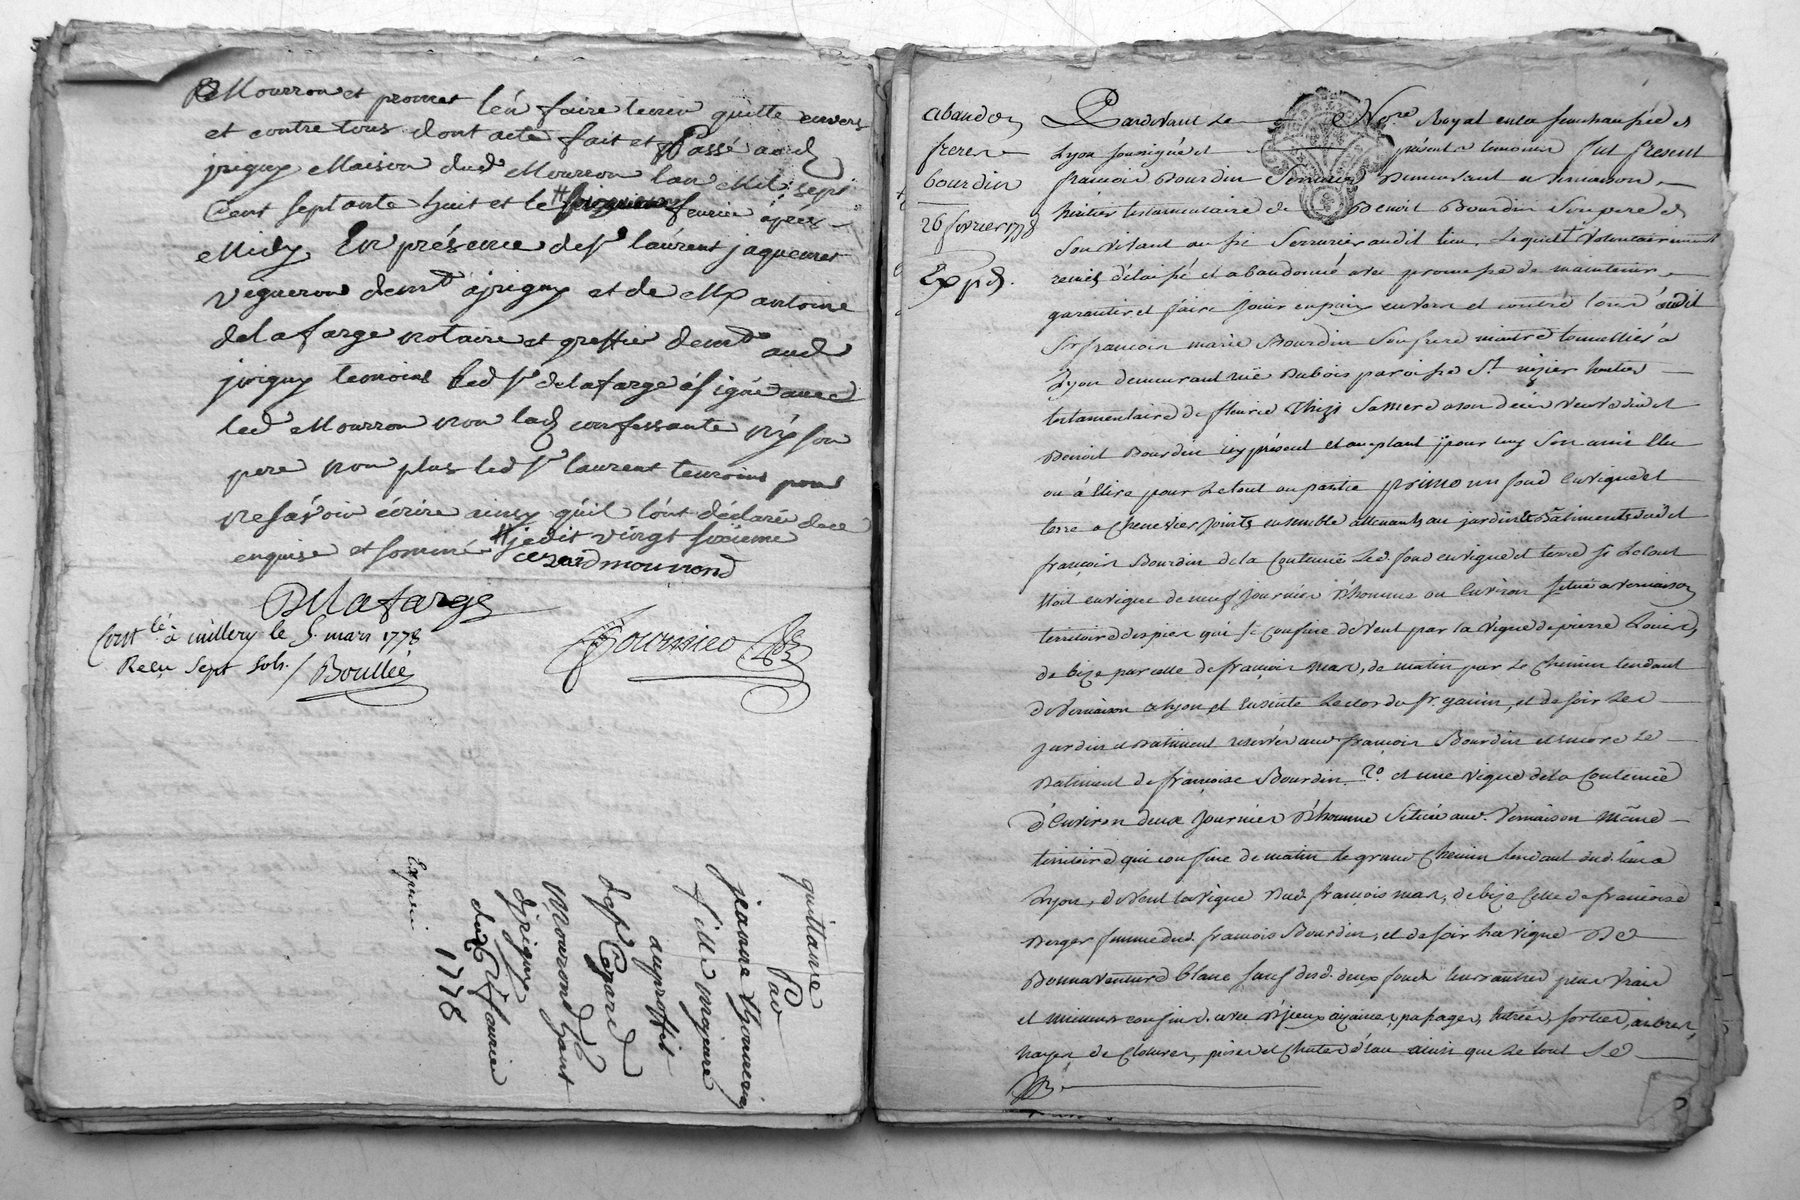 Mourron et promet l'én faire tenir quitte envers
et contre tous dont acte fait et Passé aud
jrigny Maison dud Mourron l'an Mil sept
Cent septante huit et le # fevrier aprés
Midy En présence de sr laurent jaquemet
vigneron demt a jrigny et de Me antoine
delafarge notaire et greffier demt aud
jrigny temoins led sr delafarge a signé avec
led Mourron non lad confessante ny son
pere non plus led sr laurent temoins pour
ne sávoir écrire ainsy qu'il l'ont déclaré de ce
enquise et sommé # je dit vingt sixieme
cezard mourrond
Delafarge
Contlé à millery le 5. mars 1778
Reçu sept sols. / Boullée
quittance
Par
jeanne
fille majeure
au proffit
de sr Cezard
Mourrond
d'jrigny
du 26 fevrier
1778
Expédié
abandon
freres
bourdin
26 fevrier 1778
Expd.
Pardevant le Nore Royal en la senechaussée de
Lyon soussigné et présents temoins fut present
francois Bourdin Serrurier Demeurant a vernaison
heritier testamentaire de Benoit Bourdin Son pere de
Son vivant aussi Serrurier audit lieu, Lequel volontairement
remis délaissé et abandonné avec promesse de maintenir
garantir et faire jouir en paix envers et contre tous audit
Sr francois marie Bourdin Son frere maitre tonnellier à
Lyon demeurant ruë Dubois paroisse St nizier heritier
testamentaire de fleurie Thizi Sa mere a son deces veuve dudit
Benoit Bourdin icy présent et acceptant pour luy Son amis Elu
ou à Elire pour Le tout ou partie primo un fond en vigne et
terre a Chenevier joints ensemble attenants au jardin et Batiments dudit
françois Bourdin de la Contenuë Led. fond en vigne et terre Si Le tout
étoit en vigne de neuf journées D'hommes ou Environ Situé a vernaison
territoire despier qui Se Confine de vent par la vigne de pierre
de bize par celle de françois mas, de matin par Le Chemin tendant
de vernaison a Lyon, et Ensuite Le clos du Sr. ganin, et de soir Les
jardin et Batiment reservés aud françois Bourdin et encore Le
Batiment de françoise Bourdin 2o. et une vigne de la Contenuë
d'Environ deux journées D'homme Située aud. Vernaison même
territoire qui confine de matin le grand Chemin tendant dud. lieu a
Lyon, de vent la vigne Dud. françois mas, de bize Celle de françoise
Berger femme dud. françois Bourdin, et de soir La vigne De
Bonnaventure blanc Sauf desd. deux fonds leurs autres plus vrais
et meilleurs confins. avec Ses jeux aizances, passages, Entrées, sorties, arbres,
hayes de Clotures, prises et Chutes d'eau ainsi que Le tout Se